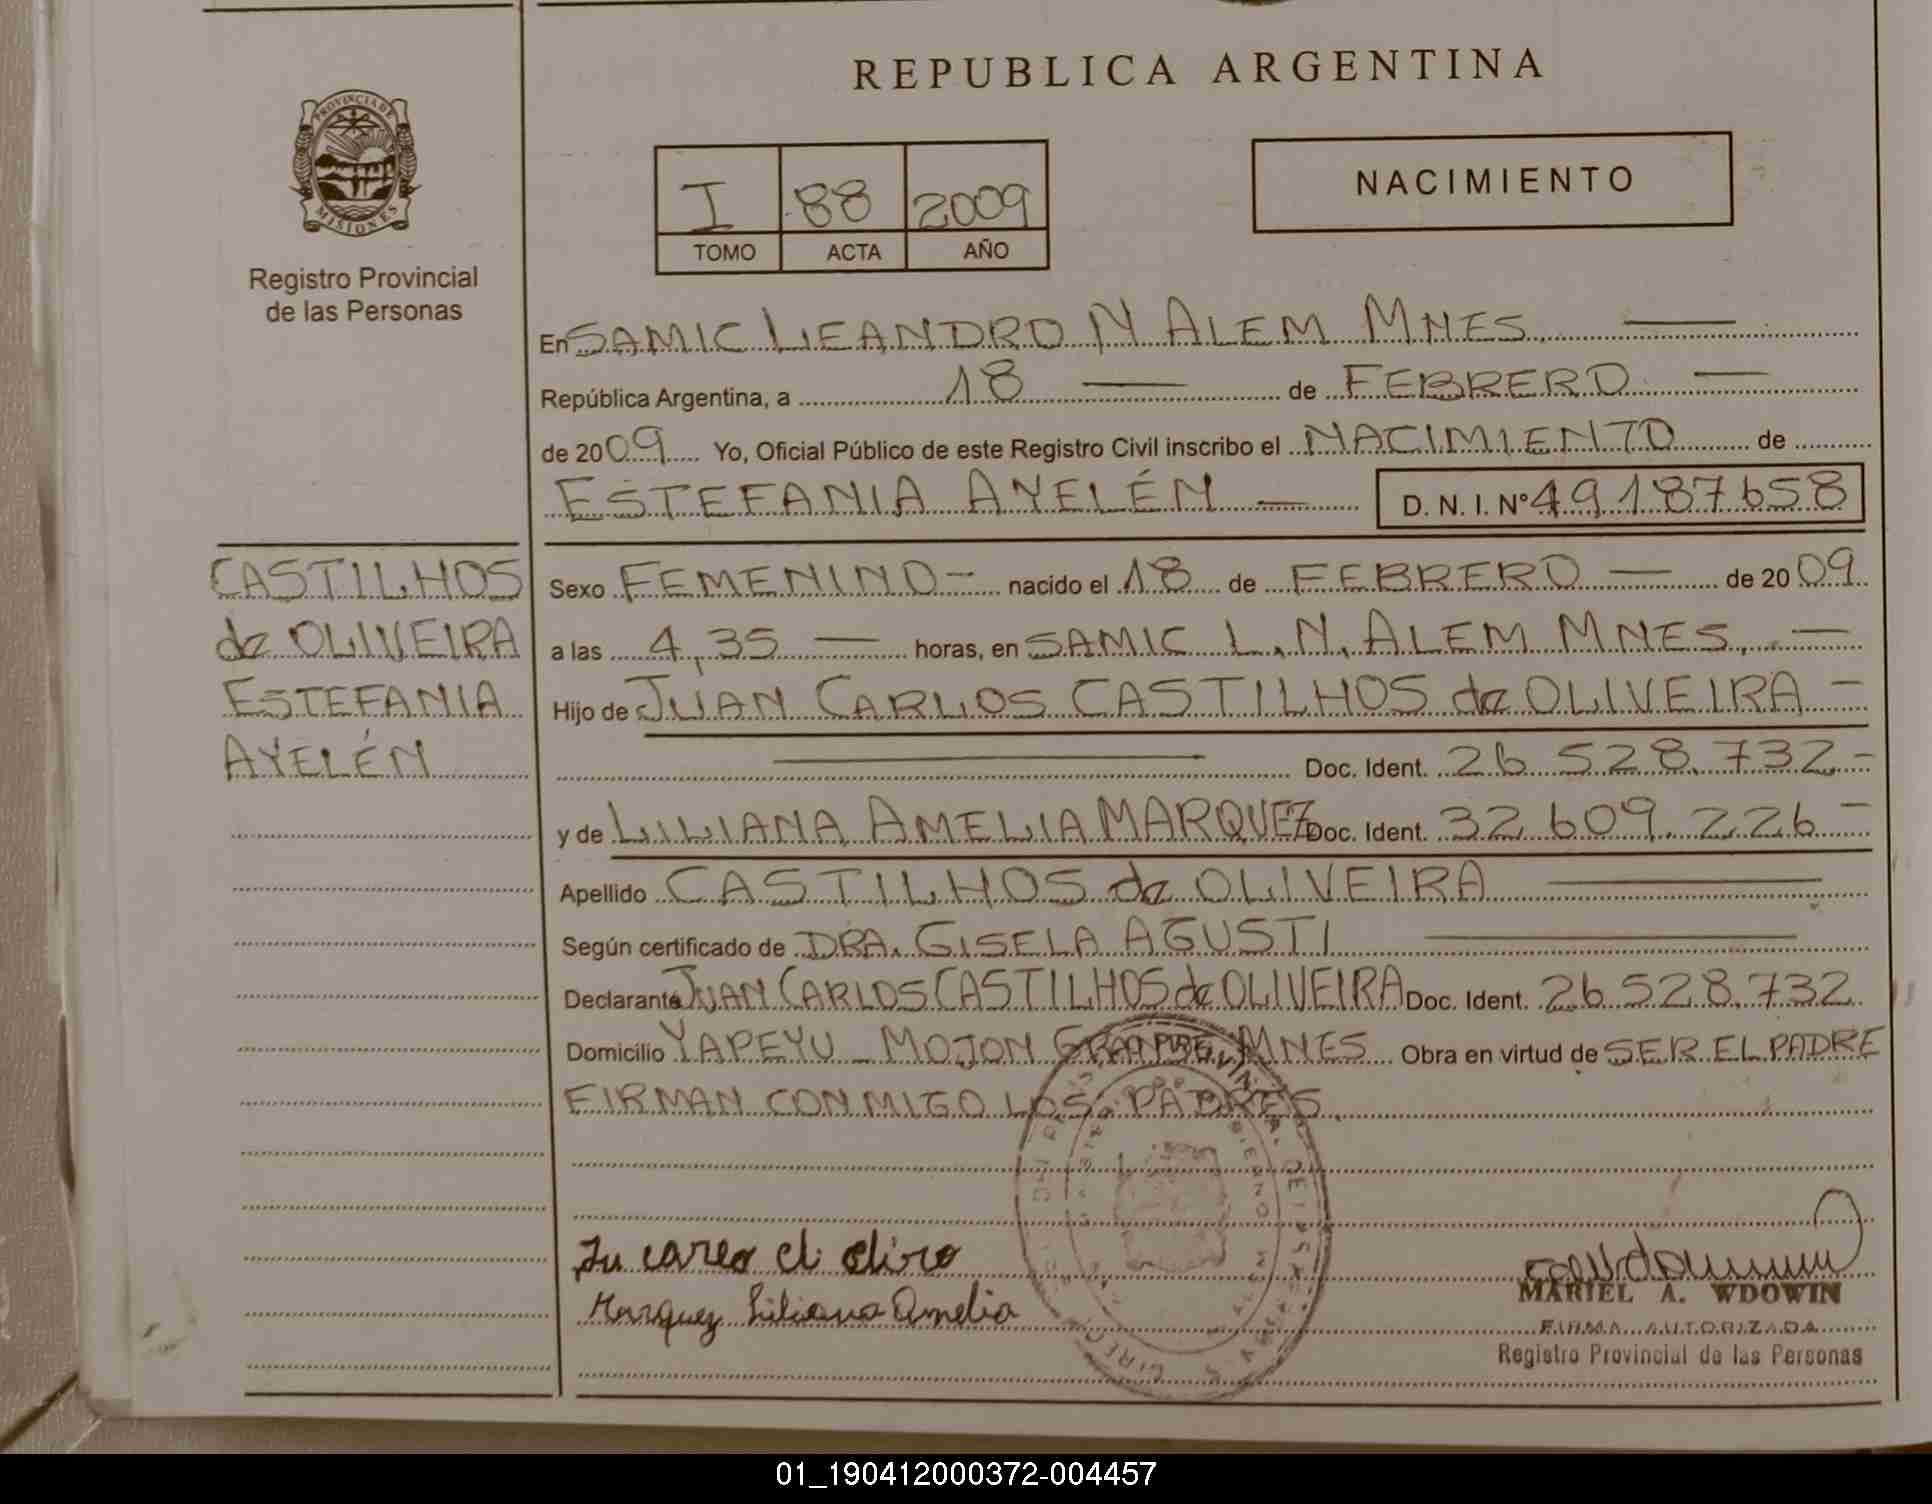 REPUBLICA ARGENTINA
PROVINCIA DE
MISIONES
Registro Provincial
de las Personas
I 88 2009
TOMO ACTA AÑO
NACIMIENTO
En SAMIC LEANDRO N ALEM MNES.
República Argentina, a 18 de FEBRERO
de 2009 Yo, Oficial Público de este Registro Civil inscribo el NACIMIENTO de
ESTEFANIA AYELÉN D. N. I. Nº 49.187.658
CASTILHOS
de OLIVEIRA
ESTEFANIA
AYELÉN
Sexo FEMENINO - nacido el 18 de FEBRERO de 2009
a las 4,35 horas, en SAMIC L.N. ALEM MNES.
Hijo de JUAN CARLOS CASTILHOS de OLIVEIRA -
Doc. Ident. 26.528.732.-
y de LILIANA AMELIA MARQUEZ Doc. Ident. 32.609.226 -
Apellido CASTILHOS de OLIVEIRA
Según certificado de DRA. GISELA AGUSTI
Declarante JUAN CARLOS CASTILHOS de OLIVEIRA Doc. Ident. 26.528.732
Domicilio YAPEYU - MOJON GRANDE MNES Obra en virtud de SER EL PADRE
FIRMAN CONMIGO LOS PADRES.
Marquez Liliana Amelia
MARIEL A. WDOWIN
FIRMA AUTORIZADA
Registro Provincial de las Personas
01_190412000372-004457